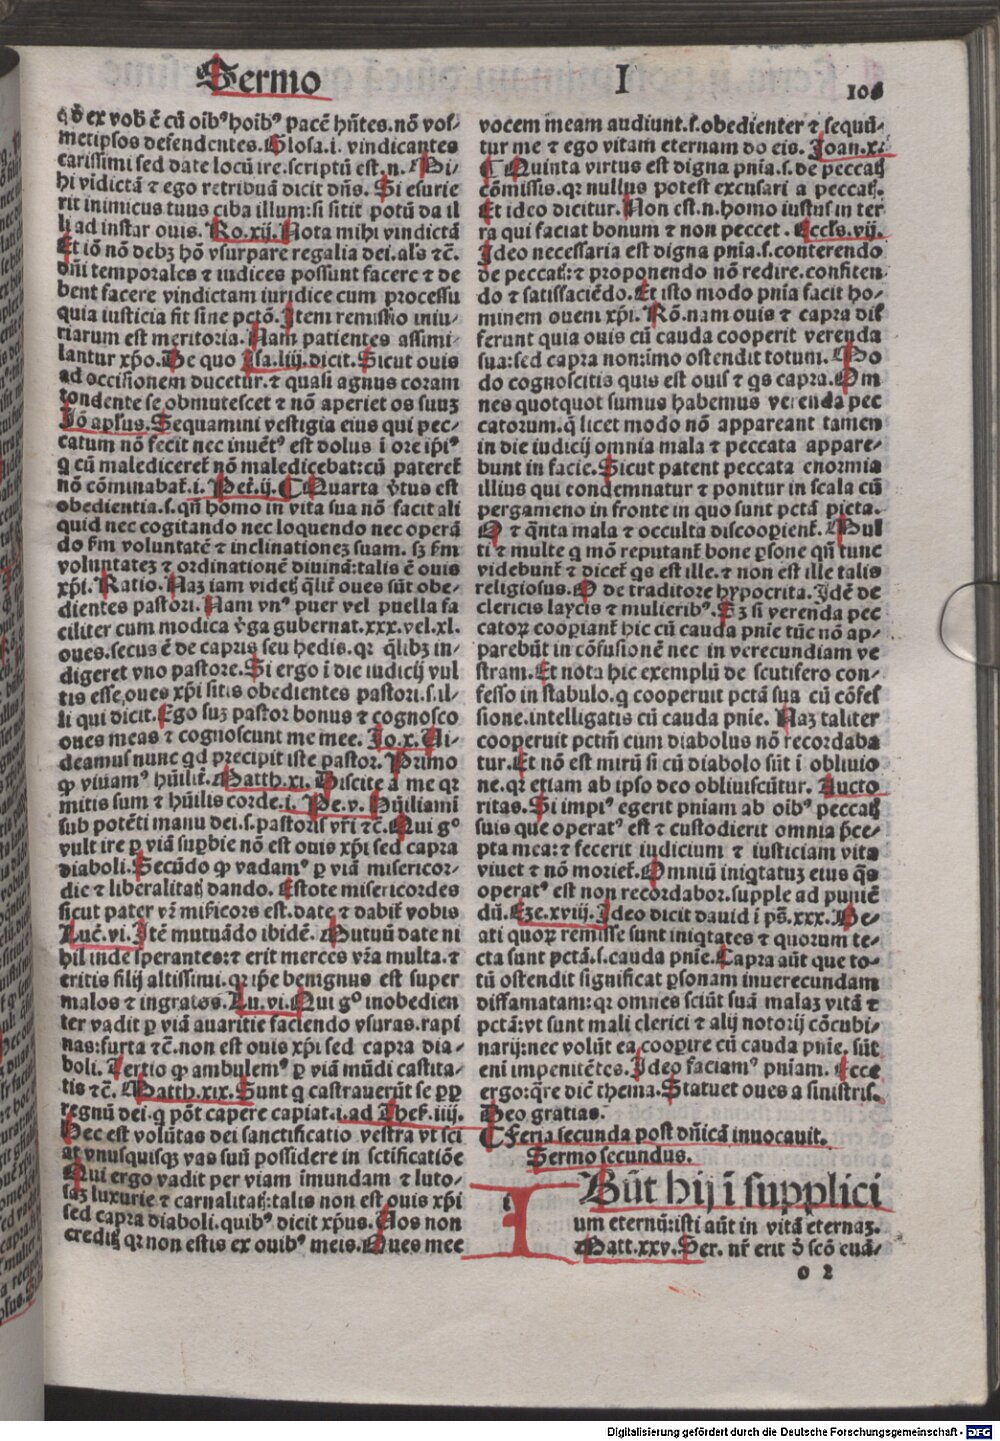 Sermo I 106
qđ ex vob̄ ē cū oibꝰ hoibꝰ pacē hn̄tes. nō vos⸗
metipsos defendentes. Glosa. i. vindicantes
carissimi sed date locū ire. scriptū est. n. Mi⸗
hi vidictā ⁊ ego retribuā dicit dn̄s. Si esurie
rit inimicus tuus ciba illum: si sitit potū da il
li ad instar ouis. Ro. xij. Nota mihi vindictā
Et iō nō debꝫ hō vsurpare regalia dei. als ⁊c̄.
dn̄i temporales ⁊ iudices possunt facere ⁊ de
bent facere vindictam iuridice cum processu
quia iusticia fit sine pctō. Item remissio iniu⸗
riarum est meritoria. Nam patientes assimi⸗
lantur xp̄o. De quo Isa. liij. dicit. Sicut ouis
ad occisionem ducetur. ⁊ quasi agnus coram
tondente se obmutescet ⁊ nō aperiet os suuꝫ
Iō apl̄us. Sequamini vestigia eius qui pec⸗
catum nō fecit nec inuētꝰ est dolus ī ore ip̄iꝰ
q̄ cū malediceret̄ nō maledicebat: cū pateret̄
nō cōminabat̄. i. Pet̄. ij. ¶ Quarta v̄tus est
obedientia. s. qn̄ homo in vita sua nō facit ali
quid nec cogitando nec loquendo nec operā
do s̄m voluntatē ⁊ inclinationeꝫ suam. sꝫ s̄m
voluntateꝫ ⁊ ordinationē diuinā: talis ē ouis
xp̄i. Ratio. Naꝫ iam videtꝭ qlr̄ oues sūt obe⸗
dientes pastori. Nam vnꝰ puer vel puella fa
ciliter cum modica v̄ga gubernat. xxx. vel. xl.
oues. secus ē de capris seu hedis. qr qlibꝫ in⸗
digeret vno pastore. Si ergo ī die iudicij vul
tis esse oues xp̄i sitis obedientes pastori. s. il⸗
li qui dicit. Ego suꝫ pastor bonus ⁊ cognosco
oues meas ⁊ cognoscunt me mee. Io. x. Ui⸗
deamus nunc qd precipit iste pastor. Primo
ꝙ viuamꝰ hūilit̄. Matth. xi. Discite a me qr
mitis sum ⁊ hūilis corde. i. Pe. v. Hūiliamī
sub potēti manu dei. s. pastoris vr̄i ⁊c̄. Qui gº
vult ire ꝑ viā suꝑbie nō est ouis xp̄i sed capra
diaboli. Secūdo ꝙ vadamꝰ ꝑ viā misericor⸗
die ⁊ liberalitatꝭ dando. Estote misericordes
sicut pater vr̄ mīsicors est. date ⁊ dabit̄ vobis
Luc̄. vi. Itē mutuādo ibidē. Mutuū date ni
hil inde sperantes: ⁊ erit merces vr̄a multa. ⁊
eritis filij altissimi. qr ip̄e benignus est super
malos ⁊ ingratos. Lu. vi. Qui gº inobedien
ter vadit ꝑ viā auaritie faciendo vsuras. rapi
nas: furta ⁊c̄. non est ouis xp̄i sed capra dia⸗
boli. Tertio ꝙ ambulemꝰ ꝑ viā mūdi castita⸗
tis ⁊c̄. Matth. xix. Sunt q castrauerūt se ꝓꝑ
regnū dei. q pōt capere capiat. i. ad Thes̄. iiij.
Hec est volūtas dei sanctificatio vestra vt sci
at vnusquisqꝫ vas suū possidere in sctificatiōe
Qui ergo vadit per viam īmundam ⁊ luto⸗
saꝫ luxurie ⁊ carnalitatꝭ: talis non est ouis xp̄i
sed capra diaboli. quibꝰ dicit xp̄us. Uos non
creditꝭ qr non estis ex ouibꝰ meis. Oues mee
vocem meam audiunt. s. obedienter ⁊ sequū⸗
tur me ⁊ ego vitam eternam do eis. Joan. x.
¶ Quinta virtus est digna pn̄ia. s. de peccatꝭ
cōmissis. qr nullus potest excusari a peccatꝭ.
Et ideo dicitur. Non est. n. homo iustus in ter
ra qui faciat bonum ⁊ non peccet. Eccls. vij.
Ideo necessaria est digna pn̄ia. s. conterendo
de peccatꝭ: ⁊ proponendo nō redire. confiten⸗
do ⁊ satisfaciēdo. Et isto modo pn̄ia facit ho⸗
minem ouem xp̄i. Rō. nam ouis ⁊ capra dif
ferunt quia ouis cū cauda cooperit verenda
sua: sed capra non: īmo ostendit totum. Mo
do cognoscitis quis est ouis ⁊ qs capra. Om
nes quotquot sumus habemus verenda pec
catorum. q̄ licet modo nō appareant tamen
in die iudicij omnia mala ⁊ peccata appare⸗
bunt in facie. Sicut patent peccata enormia
illius qui condemnatur ⁊ ponitur in scala cū
pergameno in fronte in quo sunt pctā picta.
O ⁊ qn̄ta mala ⁊ occulta discoopient̄. Mul
ti ⁊ multe q mō reputant̄ bone ꝑsone qn̄ tunc
videbunt̄ ⁊ dicet̄ qs est ille. ⁊ non est ille talis
religiosus. O de traditore hypocrita. Idē de
clericis laycis ⁊ mulieribꝰ. Sꝫ si verenda pec
catoꝝ cooꝑiant̄ hic cū cauda pn̄ie tūc nō ap⸗
parebūt in cōfusionē nec in verecundiam ve
stram. Et nota hic exemplū de scutifero con⸗
fesso in stabulo. q cooperuit pctā sua cū cōfes
sione. intelligatis cū cauda pn̄ie. Naꝫ taliter
cooperuit pctm̄ cum diabolus nō recordaba
tur. Et nō est mirū si cū diabolo sūt ī obliuio
ne. qr etiam ab ipso deo obliuiscūtur. Aucto
ritas. Si impiꝰ egerit pn̄iam ab oibꝰ peccatꝭ
suis que operatꝰ est ⁊ custodierit omnia p̄ce⸗
pta mea: ⁊ fecerit iudicium ⁊ iusticiam vita
viuet ⁊ nō moriet̄. Omniū iniqtatuꝫ eius q̄s
operatꝰ est non recordabor. supple ad puniē
dū. Eze. xviij. Ideo dicit dauid ī ps̄. xxx. Be⸗
ati quoꝝ remisse sunt iniqtates ⁊ quorum te⸗
cta sunt pctā. s. cauda pn̄ie. Capra aūt que to⸗
tū ostendit significat ꝑsonam inuerecundam
diffamatam: qr omnes sciūt suā malaꝫ vitā ⁊
pctā: vt sunt mali clerici ⁊ alij notorij cōcubi⸗
narij: nec volūt ea cooꝑire cū cauda pn̄ie. sūt
enī impenitētes. Ideo faciamꝰ pn̄iam. Ecce
ergo: q̄re dic̄ thema. Statuet oues a sinistris.
Deo gratias.
¶ Feria secunda post dn̄icā inuocauit.
Sermo secundus.
I Būt hij ī supplici
um eternū: isti aūt in vitā eternaꝫ.
Matt. xxv. Ser. nr̄ erit d̄ scō euā⸗
o 2
Digitalisierung gefördert durch die Deutsche Forschungsgemeinschaft - DFG